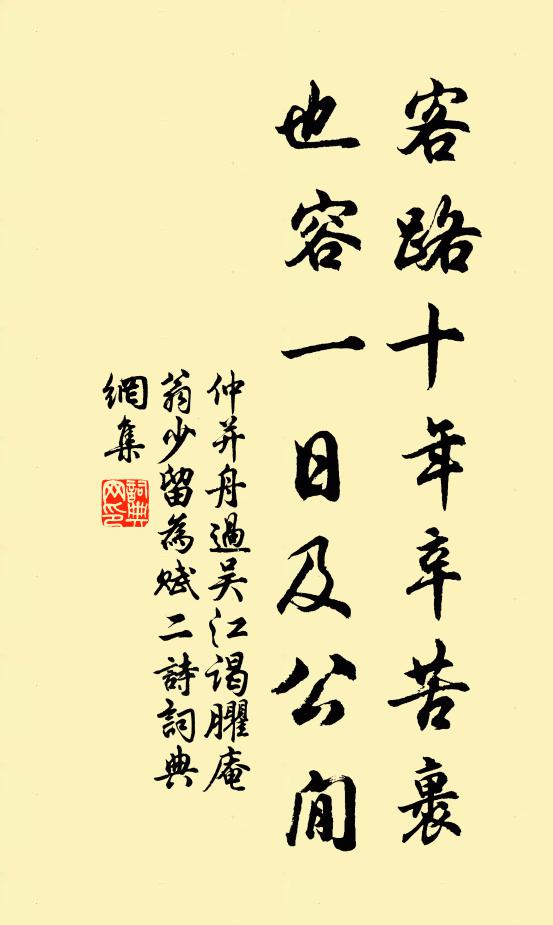 客路十年辛苦裏
也容一日及公閒
仲并舟過吴江謁臞庵
翁少留為赋二詩詞典
網集
詞典網印